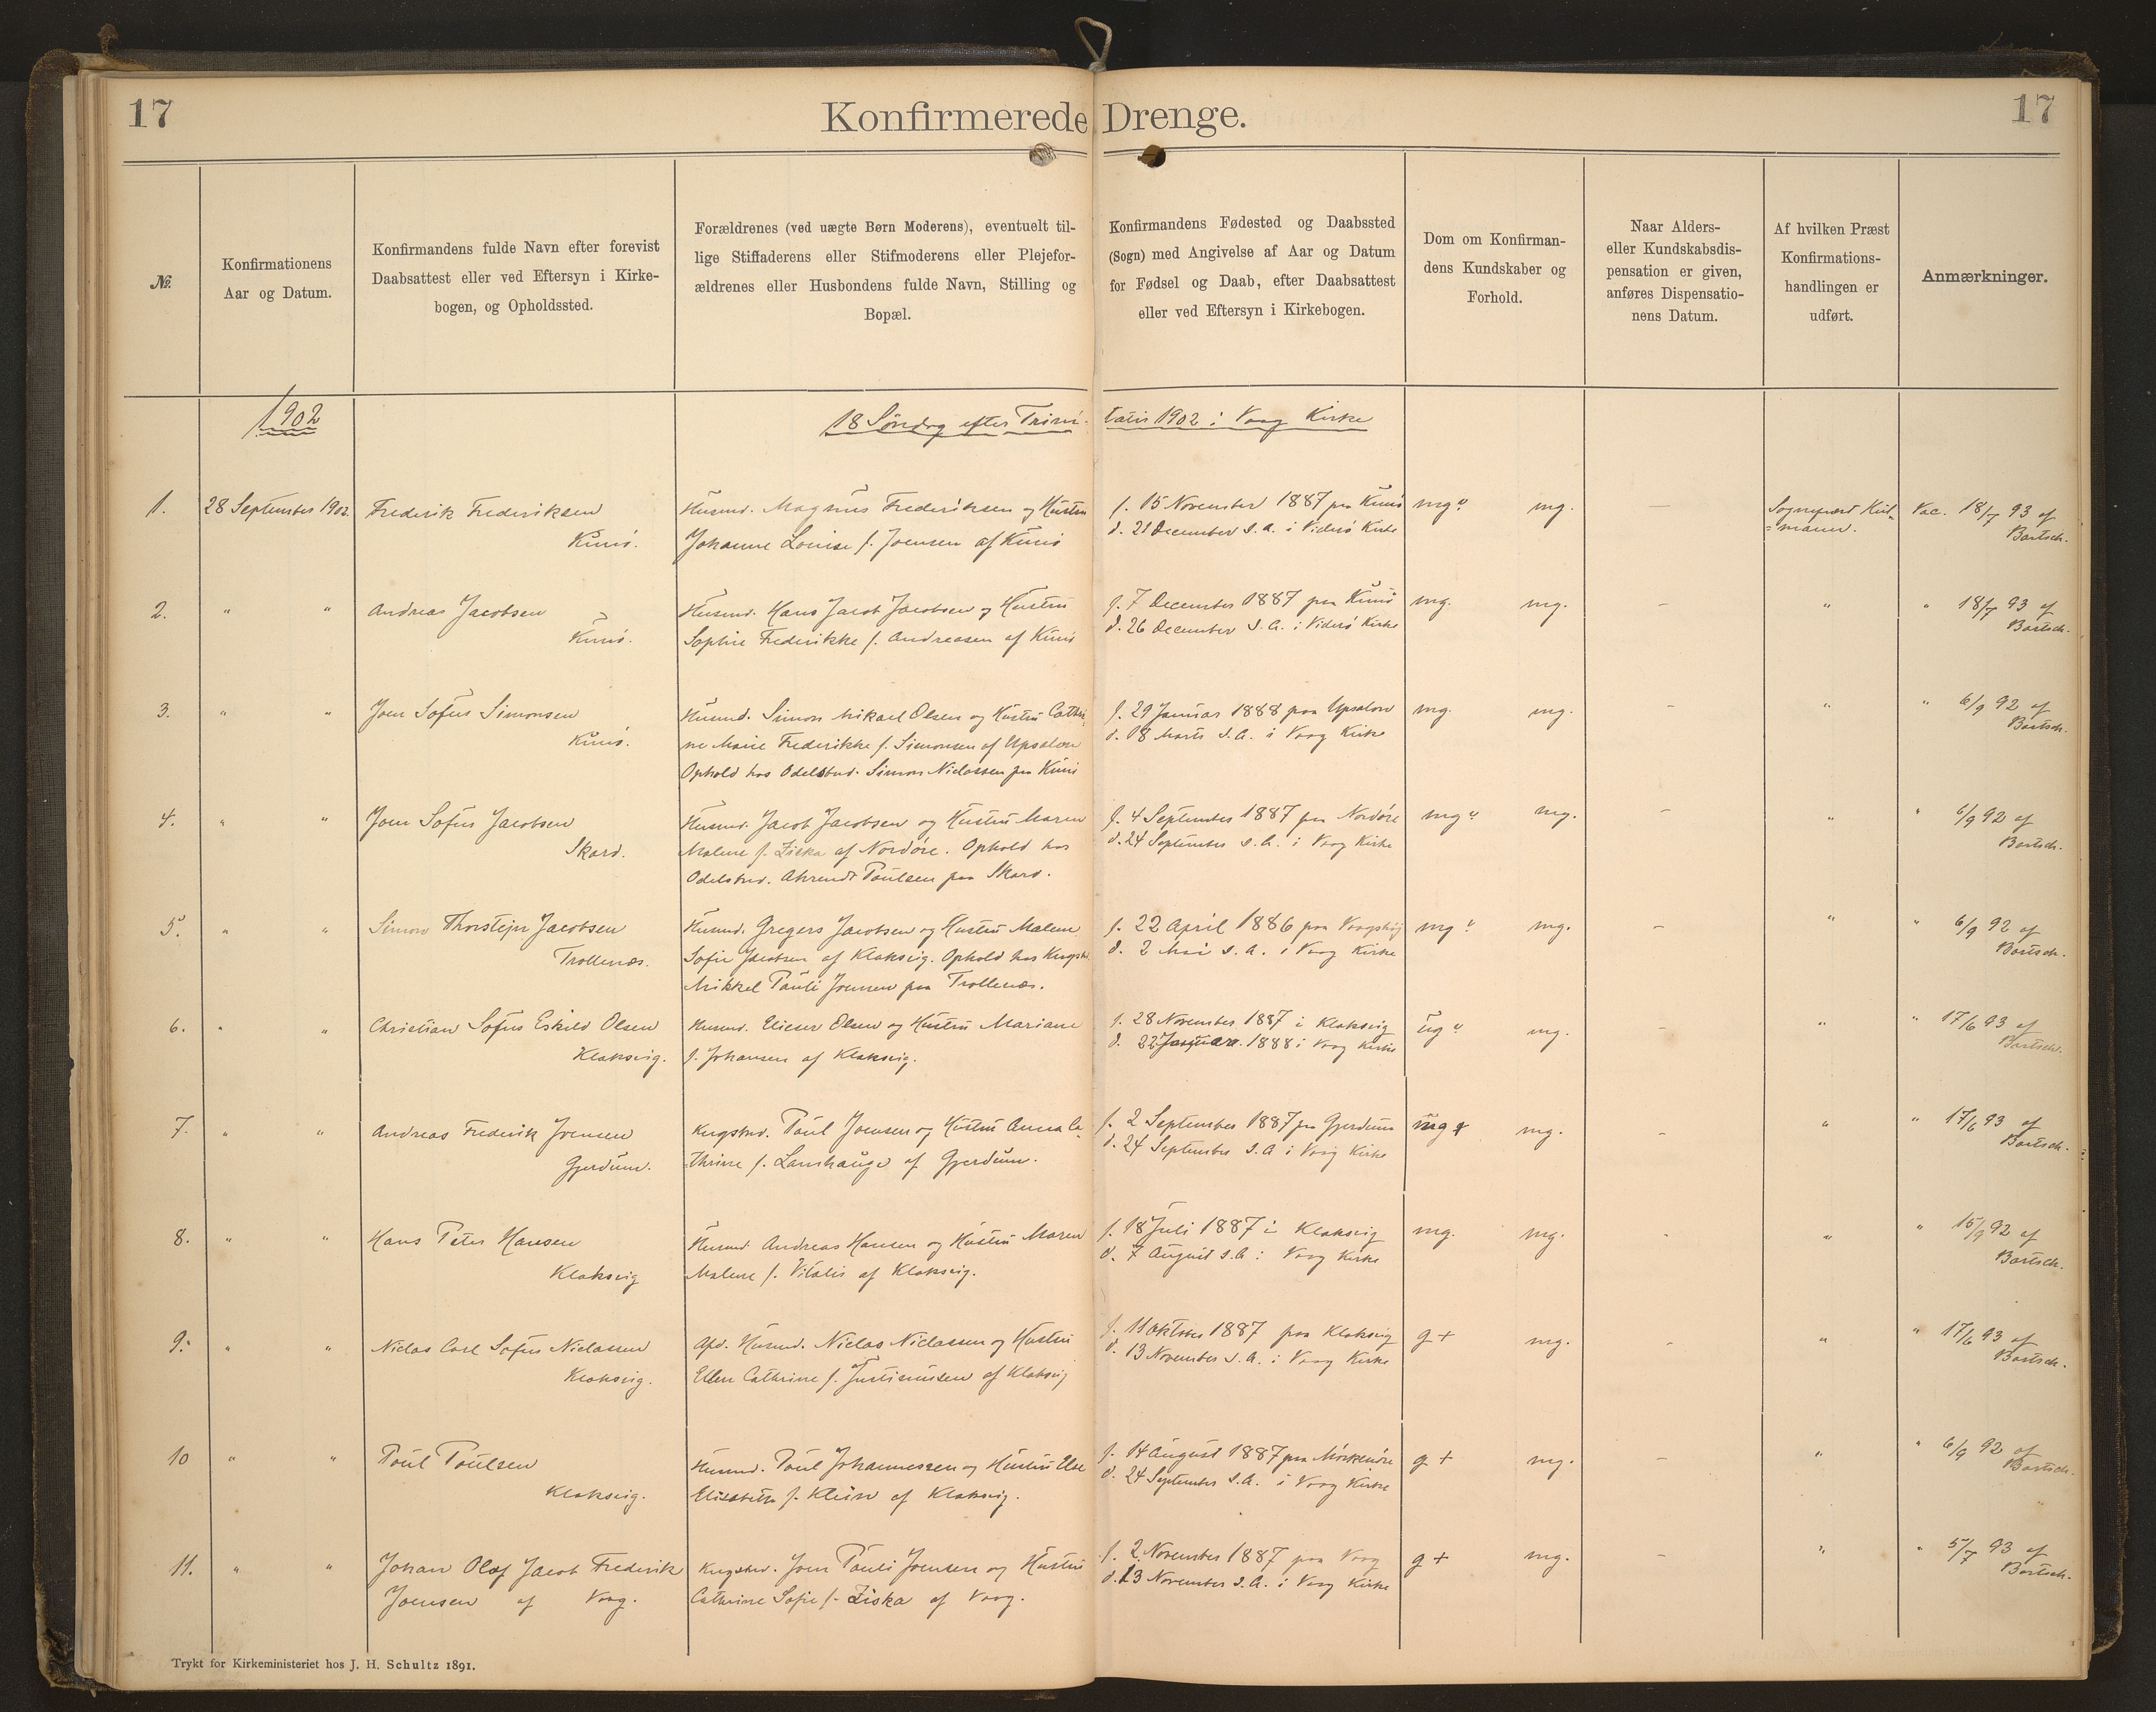 17
Konfirmerede Drenge.
17
№.
Konfirmationens
Aar og Datum.
Konfirmandens fulde Navn efter forevist
Daabsattest eller ved Eftersyn i Kirke-
bogen, og Opholdssted.
Forældrenes (ved uægte Børn Moderens), eventuelt til-
lige Stiffaderens eller Stifmoderens eller Plejefor-
ældrenes eller Husbondens fulde Navn, Stilling og
Bopæl.
Konfirmandens Fødested og Daabssted
(Sogn) med Angivelse af Aar og Datum
for Fødsel og Daab, efter Daabsattest
eller ved Eftersyn i Kirkebogen.
Dom om Konfirman-
dens Kundskaber og
Forhold.
Naar Alders-
eller Kundskabsdis-
pensation er given,
anføres Dispensatio-
nens Datum.
Af hvilken Præst
Konfirmations-
handlingen er
udført.
Anmærkninger.
1902
18 Søndag efter Trini-
tatis 1902 i Vaag Kirke
1.
28 September 1902.
Frederik Frederiksen
Kunø.
Husmd. Magnus Frederiksen og Hustru
Johanne Louise f. Joensen af Kunø
f. 15 November 1887 paa Kunø
d. 21 December s. a. i Viderø Kirke
mg"
mg.
—
Sognepræst
Vac. 18/7 93 af
Bartsch.
2.
" "
Andreas Jacobsen
Kunø.
Husmd. Hans Jacob Jacobsen og Hustru
Sophie Frederikke f. Andreasen af Kunø
f. 7 December 1887 paa Kunø
d. 26 December s. a. i Viderø Kirke
mg.
mg.
—
"
" 18/7 93 af
Bartsch.
3.
" "
Joen Sofus Simonsen
Kunø.
Husmd. Simon Mikael Olsen og Hustru Cathri-
ne Marie Frederikke f. Simonsen af Upsalon
Ophold hos Odelsbmd. Simon Niclassen paa Kunø
f. 29 Januar 1888 paa Upsalon
d. 18 Marts s. a. i Vaag Kirke
mg.
mg.
—
"
" 6/9 92 af
Bartsch.
4.
" "
Joen Sofus Jacobsen
Skard.
Husmd. Jacob Jacobsen og Hustru Maren
Malene f. Ziska af Nordøre. Ophold hos
Odelsbmd. Ahrendt Poulsen paa Skard.
f. 4 September 1887 paa Nordøre
d. 24 September s. a. i Vaag Kirke
mg"
mg.
—
"
" 6/9 92 af
Bartsch.
5.
" "
Simon Thorstejn Jacobsen
Trollenæs.
Husmd. Gregers Jacobsen og Hustru Malene
Sofie Jacobsen af Klaksvig. Ophold hos
Mikkel Pauli Joensen paa Trollenæs.
f. 22 April 1886 paa
d. 2 Mai s. a. i Vaag Kirke
mg"
mg.
—
"
" 6/9 92 af
Bartsch.
6.
" "
Christian Sofus Eskild Olsen
Klaksvig.
Husmd. Elieser Olsen og Hustru Mariane
f. Johansen af Klaksvig.
f. 28 November 1887 i Klaksvig
d. 22 Januar. 1888 i Vaag Kirke
ug"
mg.
—
"
" 17/6 93 af
Bartsch.
7.
" "
Andreas Frederik Joensen
Gjerdum.
Kngsbmd. Poul Joensen og Hustru Anna Ca-
thrine f. Lamhauge af Gjerdum.
f. 2 September 1887 paa Gjerdum
d. 24 September s. a. i Vaag Kirke
mg +
mg.
—
"
" 17/6 93 af
Bartsch.
8.
" "
Hans Peter Hansen
Klaksvig
Husmd. Andreas Hansen og Hustru Maren
Malene f. Vitalis af Klaksvig.
f. 18 Juli 1887 i Klaksvig
d. 7 August s. a. i Vaag Kirke
mg.
mg.
-
"
" 15/9 92 af
Bartsch.
9.
" "
Niclas Carl Sofus Niclassen
Klaksvig.
Afd. Husmd. Niclas Niclassen og Hustru
Ellen Cathrine f. Justinussen af Klaksvig
f. 11 Oktober 1887 paa Klaksvig
d. 13 November s. a. i Vaag Kirke
g +
mg.
-
"
" 17/6 93 af
Bartsch.
10
" "
Poul Poulsen
Klaksvig.
Husmd. Poul Johannessen og Hustru Else
Elisabeth f. Klein af Klaksvig.
f. 14 August 1887 paa Mørkenøre
d. 24 September s. a. i Vaag Kirke
g +
mg.
—
"
" 6/9 92 af
Bartsch.
11.
" "
Johan Olaf Jacob Frederik
Joensen af Vaag.
Kngsbmd. Joen Pauli Joensen og Hustru
Cathrine Sofie f. Ziska af Vaag.
f. 2 November 1887 paa Vaag
d. 13 November s. a. i Vaag Kirke
g +
mg.
—
"
" 5/7 93 af
Bartsch.
Trykt for Kirkeministeriet hos J. H. Schultz 1891.